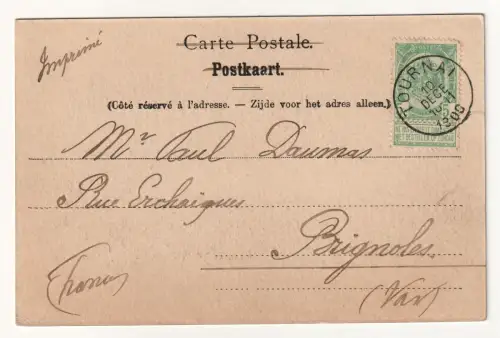 Imprimé
Carte Postale.
Postkaart.
(Côté réservé à l'adresse. — Zijde voor het adres alleen.)
TOURNAI
DECE
1900
Mr Paul Daumas
Rue
Brignoles
(Var)
(France)